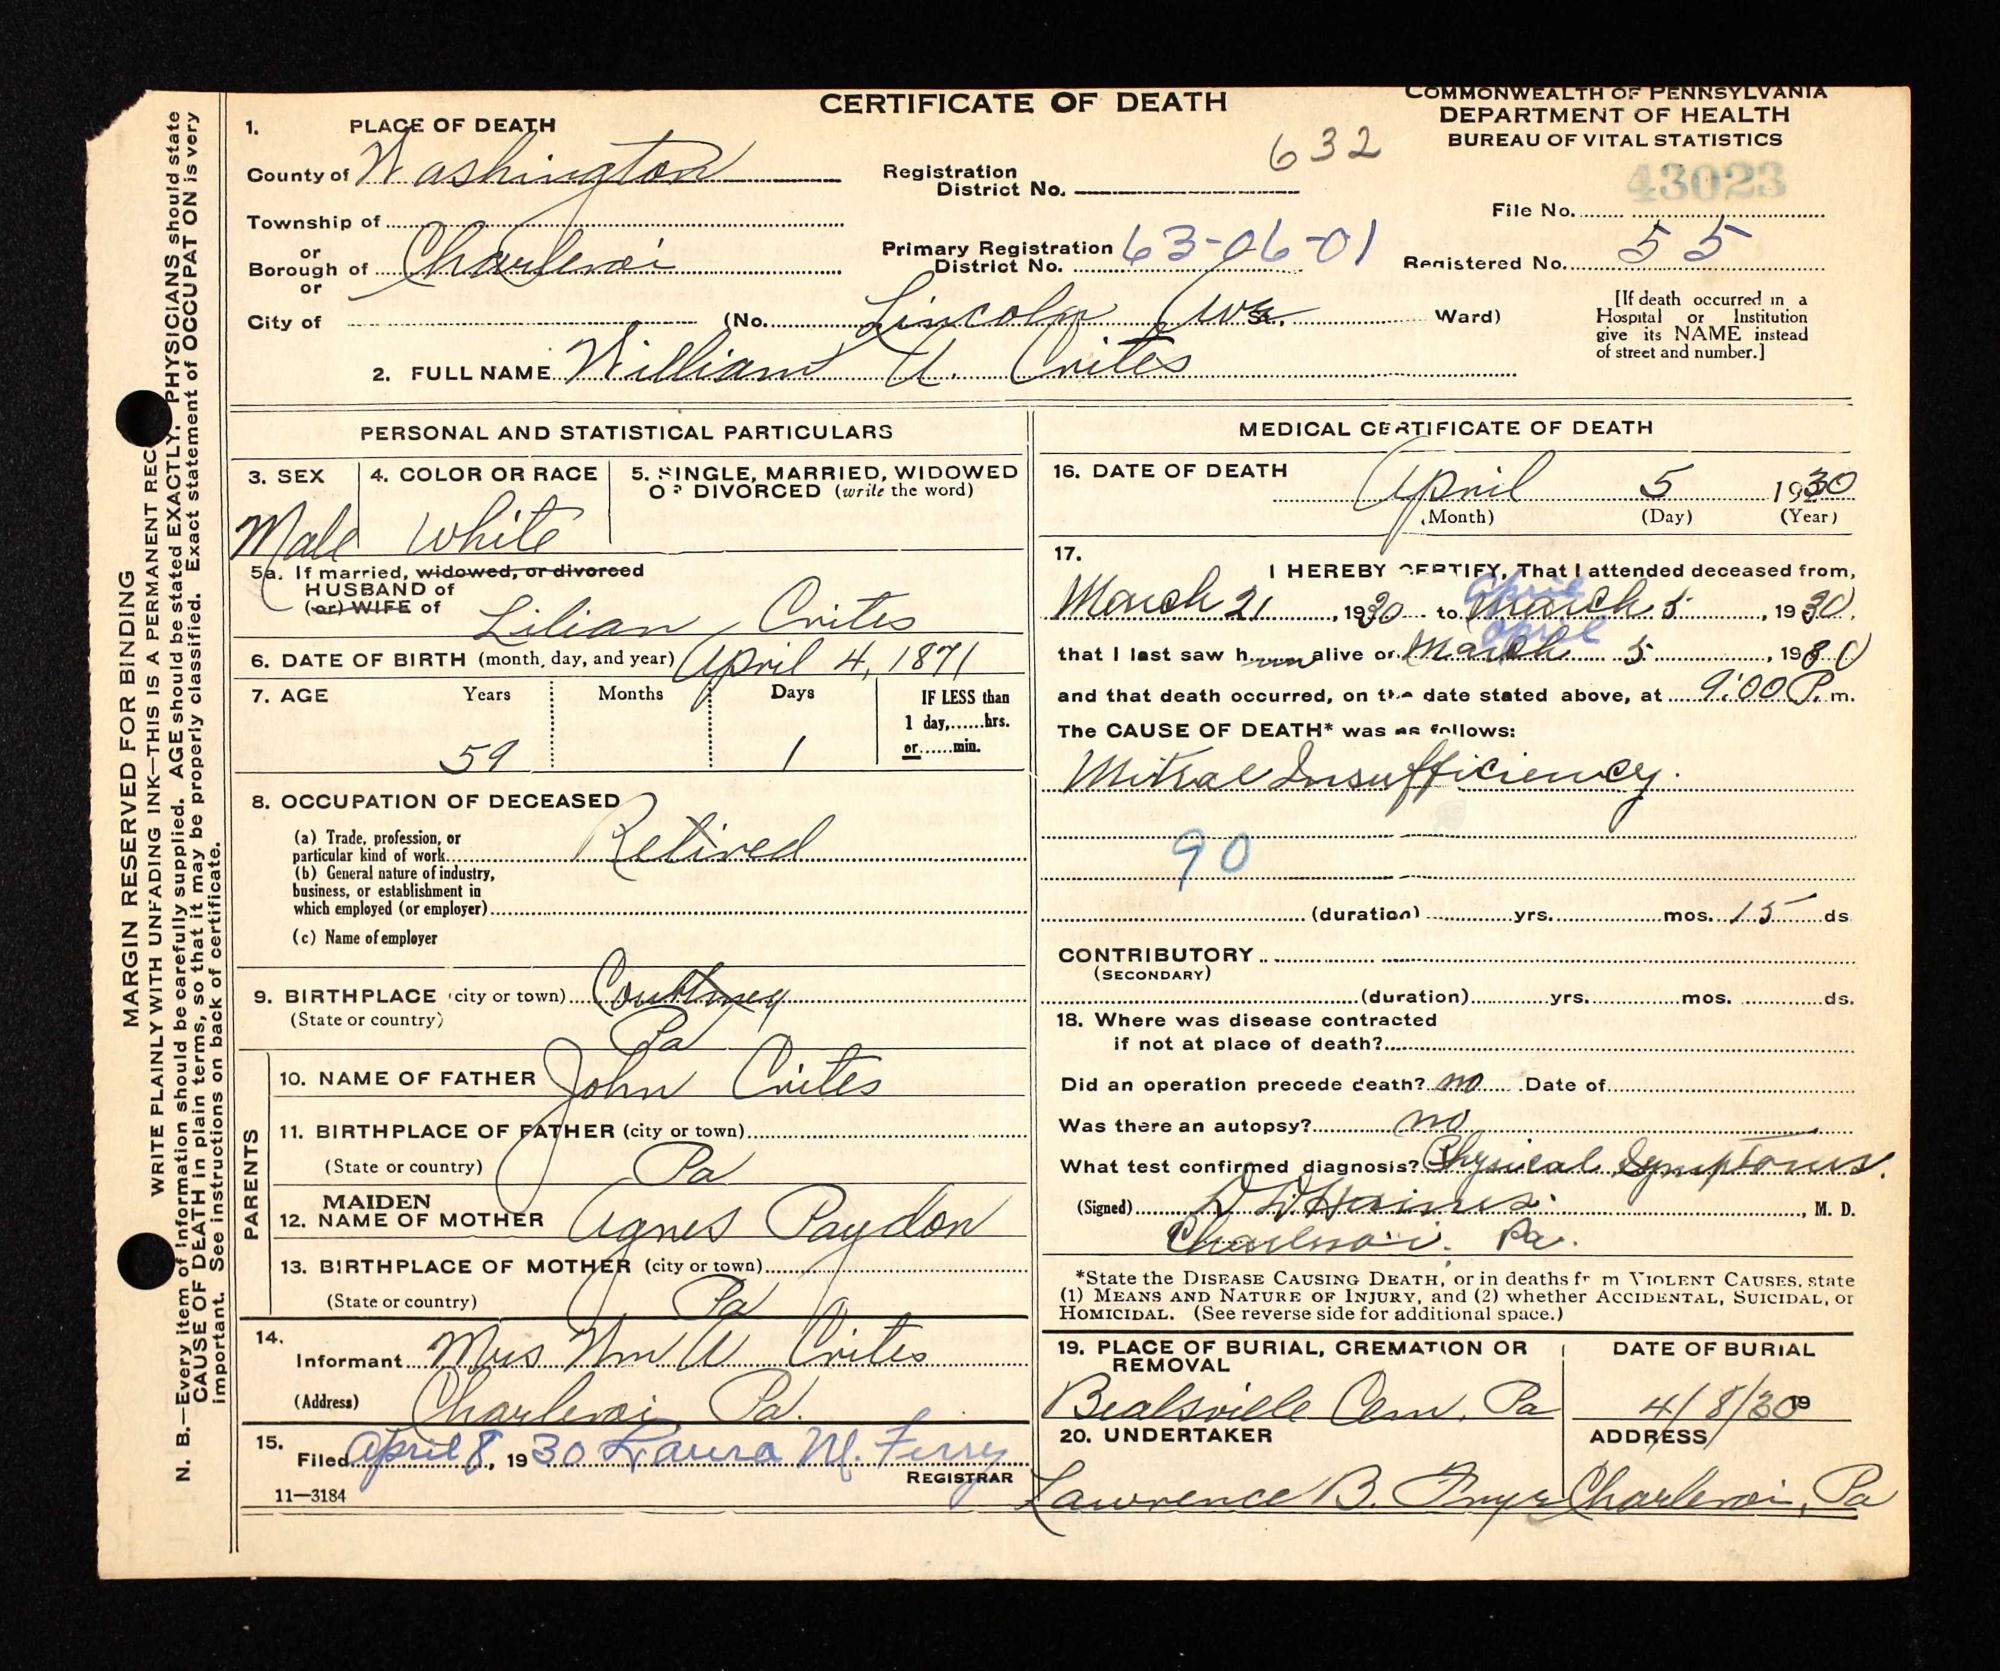 CERTIFICATE OF DEATH
COMMONWEALTH OF PENNSYLVANIA
DEPARTMENT OF HEALTH
BUREAU OF VITAL STATISTICS
1. PLACE OF DEATH
County of Washington
Township of
or
Borough of Charleroi
or
City of
Registration District No. 632
Primary Registration District No. 63-06-01
43023
File No.
Registered No. 55
(No. Lincoln Ave St. Ward)
[If death occurred in a Hospital or Institution give its NAME instead of street and number.]
2. FULL NAME William A. Crites
PERSONAL AND STATISTICAL PARTICULARS
3. SEX Male
4. COLOR OR RACE White
5. SINGLE, MARRIED, WIDOWED OR DIVORCED (write the word)
5a. If married, widowed, or divorced
HUSBAND of
(or) WIFE of Lilian Crites
6. DATE OF BIRTH (month, day, and year) April 4, 1871
7. AGE Years Months Days IF LESS than
1 day,......hrs.
59 1 or......min.
8. OCCUPATION OF DECEASED
(a) Trade, profession, or
particular kind of work Retired
(b) General nature of industry,
business, or establishment in
which employed (or employer)
(c) Name of employer
9. BIRTHPLACE (city or town) Courtney
(State or country) Pa
PARENTS
10. NAME OF FATHER John Crites
11. BIRTHPLACE OF FATHER (city or town)
(State or country) Pa
12. MAIDEN NAME OF MOTHER Agnes Paydon
13. BIRTHPLACE OF MOTHER (city or town)
(State or country) Pa
14. Informant Mrs Wm A Crites
(Address) Charleroi, Pa.
15. Filed April 8, 1930 Laura M. Ferry
REGISTRAR
11—3184
MEDICAL CERTIFICATE OF DEATH
16. DATE OF DEATH April 5 1930
(Month) (Day) (Year)
17. I HEREBY CERTIFY, That I attended deceased from,
April
March 21, 1930 to March 5, 1930,
April
that I last saw him alive on March 5, 1930
and that death occurred, on the date stated above, at 9:00 P. m.
The CAUSE OF DEATH* was as follows:
Mitral Insufficiency.
90
(duration) yrs. mos. 15 ds
CONTRIBUTORY
(SECONDARY)
(duration) yrs. mos. ds.
18. Where was disease contracted
if not at place of death?
Did an operation precede death? no Date of
Was there an autopsy? no
What test confirmed diagnosis? Physical Symptoms.
(Signed) Haines, M. D.
Charleroi. Pa.
*State the DISEASE CAUSING DEATH, or in deaths from VIOLENT CAUSES, state
(1) MEANS AND NATURE OF INJURY, and (2) whether ACCIDENTAL, SUICIDAL, or
HOMICIDAL. (See reverse side for additional space.)
19. PLACE OF BURIAL, CREMATION OR REMOVAL
Bealsville Cem. Pa
DATE OF BURIAL
4/8/30 19
20. UNDERTAKER
Lawrence B. Frye
ADDRESS
Charleroi, Pa
MARGIN RESERVED FOR BINDING
WRITE PLAINLY WITH UNFADING INK—THIS IS A PERMANENT REC
N. B.—Every item of information should be carefully supplied. AGE should be stated EXACTLY. PHYSICIANS should state
CAUSE OF DEATH in plain terms, so that it may be properly classified. Exact statement of OCCUPATION is very
important. See instructions on back of certificate.